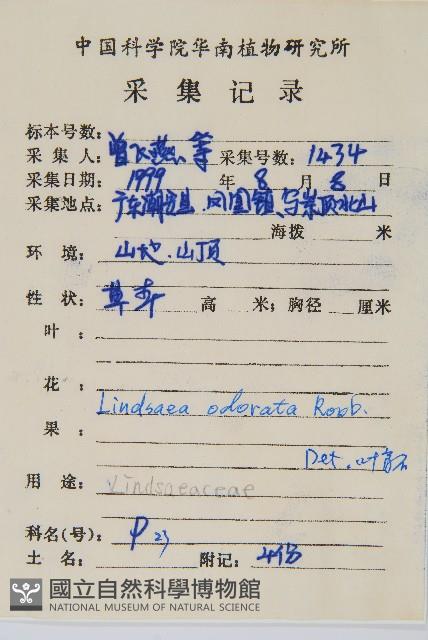 中国科学院华南植物研究所
采集记录
标本号数:
采集人: 曾飞燕、等 采集号数: 1434
采集日期: 1999 年 8 月 8 日
采集地点: 广东潮安县.凤凰镇.乌岽顶北山
海拨 米
环境: 山地.山顶
性状: 草本 高 米; 胸径 厘米
叶:
花:
Lindsaea odorata Roxb.
果:
Det. 叶育石
用途: Lindsaeaceae
科名(号): P 23
土名: 附记: 4份
國立自然科學博物館
NATIONAL MUSEUM OF NATURAL SCIENCE